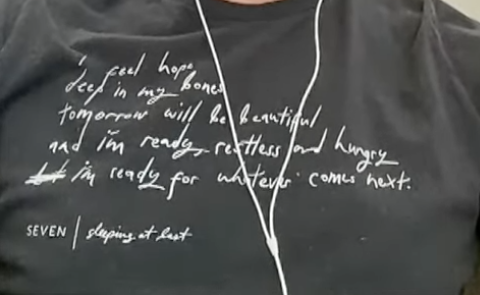 i feel hope
deep in my bones
tomorrow will be beautiful
and i'm ready, restless and hungry
i'm ready for whatever comes next.
SEVEN | sleeping at last